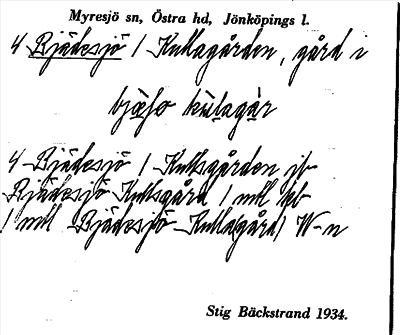 Myresjö sn, Östra hd, Jönköpings l.
4 Bjädesjö / Kullagården, gård i
4 Bjädesjö / Kullsgården jb
Bjädesjö Kullsgård / mtl hb
/ mtl Bjädesjö Kullagård/ W-n
Stig Bäckstrand 1934.